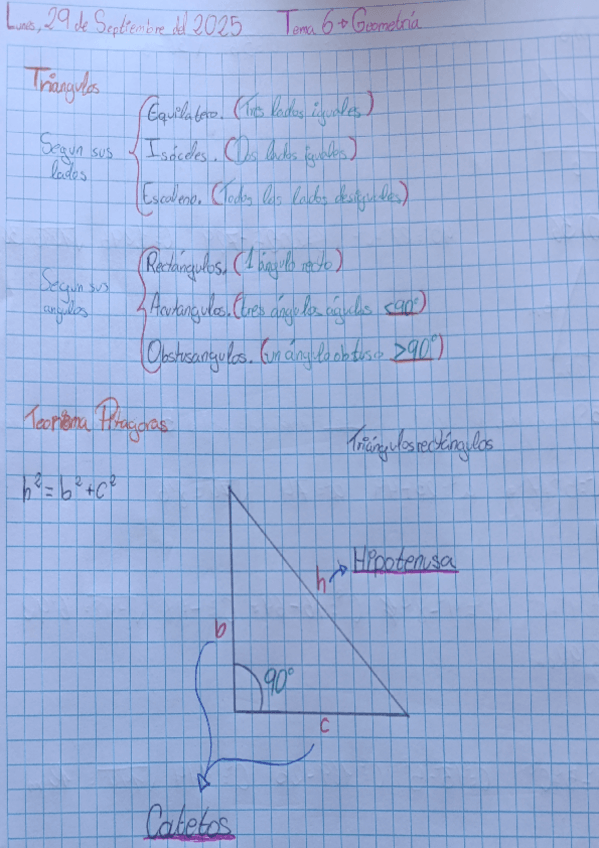 Lunes, 29 de Septiembre del 2025 Tema 6 → Geometría
Triángulos
Equilatero. (Tres lados iguales)
Segun sus lados
Isóceles. (Dos lados iguales)
Escaleno. (Todos los lados desiguales)
Rectángulos. (1 ángulo recto)
Segun sus angulos
Acutangulos. (tres ángulos águdos <90°)
Obstusangulos. (un ángulo obtuso >90°)
Teorema Pitagoras
Triángulos rectángulos
h² = b² + c²
h → Hipotenusa
b
90°
c
Catetos